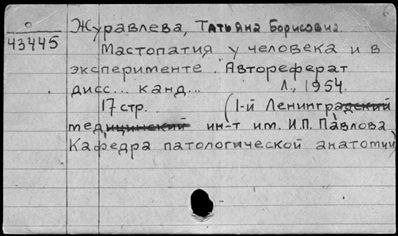 О
43445
Журавлева, Татьяна Борисовна.
Мастопатия у человека и в
эксперименте. Автореферат
дисс... канд... Л., 1954.
17 стр. (1-й Ленинградский
медицинский ин-т им. И.П. Павлова
Кафедра патологической анатомии)